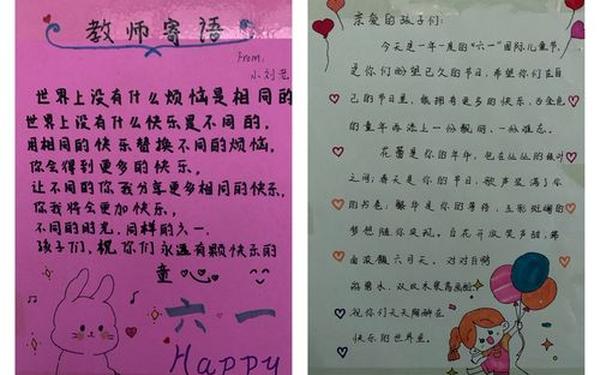 教师寄语
From:
小刘老
世界上没有什么烦恼是相同的
世界上没有什么快乐是不同的,
用相同的快乐替换不同的烦恼,
你会得到更多的快乐,
让不同的你我分享更多相同的快乐,
你我将会更加快乐,
不同的时光,同样的六一
孩子们,祝你们永远有颗快乐的
童心
六一
Happy
亲爱的孩子们:
今天是一年一度的“六一”国际儿童节,
是你们盼望已久的节日,希望你们在自
己的节日里,能拥有更多的快乐,为金色
的童年再添上一份靓丽,一份难忘。
花蕾是你的年华,包在丛丛的绿叶
之间;春天是你的节日,歌声显满了你
的书卷;繁华是你的等待,五彩斑斓的
梦想随你展现。百花开放笑声甜,
六月天。对对白鸭
水,双双木桨
祝你们天天陶醉在
快乐的世界里